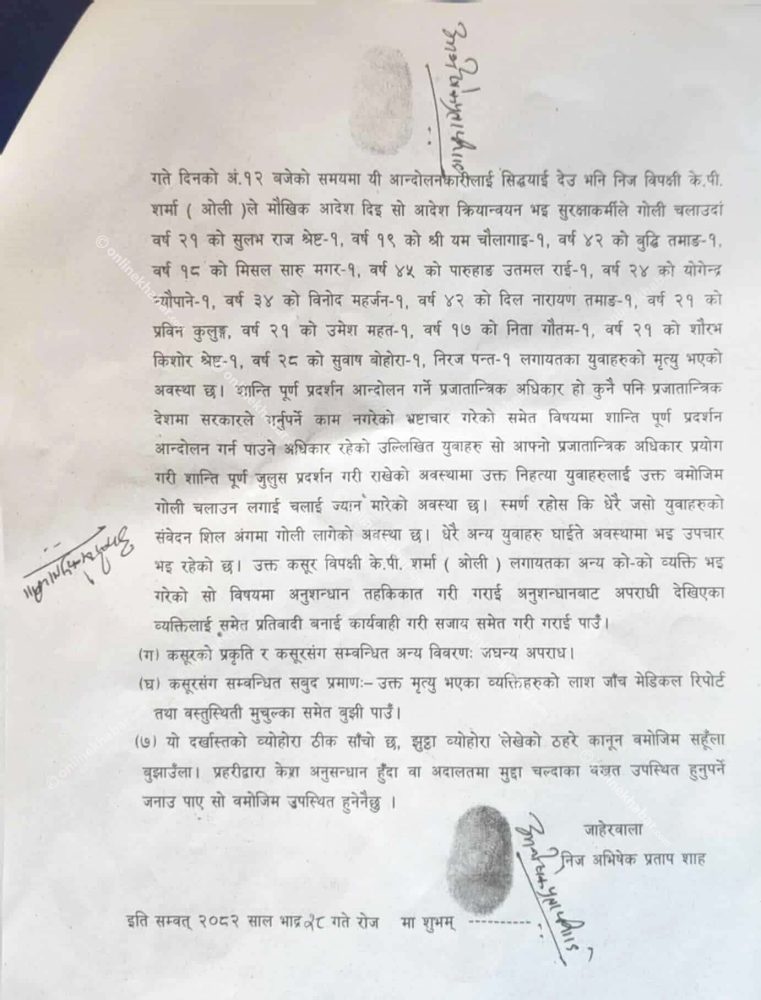 गते दिनको अं.१२ बजेको समयमा यी आन्दोलनकारीलाई सिद्धयाई देउ भनि निज विपक्षी के.पी.
शर्मा ( ओली )ले मौखिक आदेश दिइ सो आदेश क्रियान्वयन भइ सुरक्षाकर्मीले गोली चलाउदां
वर्ष २१ को सुलभ राज श्रेष्ट-१, वर्ष १९ को श्री यम चौलागाइ-१, वर्ष ४२ को बुद्धि तमाङ-१,
वर्ष १८ को मिसल सारु मगर-१, वर्ष ४५ को पारुहाङ उतमल राई-१, वर्ष २४ को योगेन्द्र
न्यौपाने-१, वर्ष ३४ को विनोद महर्जन-१, वर्ष ४२ को दिल नारायण तमाङ-१, वर्ष २१ को
प्रविन कुलुङ्ग, वर्ष २१ को उमेश महत-१, वर्ष १७ को निता गौतम-१, वर्ष २१ को शौरभ
किशोर श्रेष्ट-१, वर्ष २८ को सुवाष बोहोरा-१, निरज पन्त-१ लगायतका युवाहरुको मृत्यु भएको
अवस्था छ। शान्ति पूर्ण प्रदर्शन आन्दोलन गर्ने प्रजातान्त्रिक अधिकार हो कुनै पनि प्रजातान्त्रिक
देशमा सरकारले गर्नुपर्ने काम नगरेको भ्रष्टाचार गरेको समेत विषयमा शान्ति पूर्ण प्रदर्शन
आन्दोलन गर्न पाउने अधिकार रहेको उल्लिखित युवाहरु सो आफ्नो प्रजातान्त्रिक अधिकार प्रयोग
गरी शान्ति पूर्ण जुलुस प्रदर्शन गरी राखेको अवस्थामा उक्त निहत्या युवाहरुलाई उक्त वमोजिम
गोली चलाउन लगाई चलाई ज्यान मारेको अवस्था छ। स्मर्ण रहोस कि धेरै जसो युवाहरुको
संवेदन शिल अंगमा गोली लागेको अवस्था छ। धेरै अन्य युवाहरु घाईते अवस्थामा भइ उपचार
भइ रहेको छ। उक्त कसूर विपक्षी के.पी. शर्मा ( ओली ) लगायतका अन्य को-को व्यक्ति भइ
गरेको सो विषयमा अनुशन्धान तहकिकात गरी गराई अनुशन्धानबाट अपराधी देखिएका
व्यक्तिलाई समेत प्रतिवादी बनाई कार्यवाही गरी सजाय समेत गरी गराई पाउँ।
(ग) कसूरको प्रकृति र कसूरसंग सम्वन्धित अन्य विवरणः जघन्य अपराध।
(घ) कसूरसंग सम्वन्धित सबुद प्रमाणः– उक्त मृत्यु भएका व्यक्तिहरुको लाश जाँच मेडिकल रिपोर्ट
तथा वस्तुस्थिती मुचुल्का समेत बुझी पाउँ।
(७) यो दर्खास्तको व्योहोरा ठीक साँचो छ, झुठ्ठा व्योहोरा लेखेको ठहरे कानून वमोजिम सहूँला
बुझाउँला। प्रहरीद्वारा केश अनुसन्धान हुँदा वा अदालतमा मुद्दा चल्दाका बखत उपस्थित हुनुपर्ने
जनाउ पाए सो वमोजिम उपस्थित हुनेनैछु ।
जाहेरवाला
निज अभिषेक प्रताप शाह
इति सम्वत् २०८२ साल भाद्र २८ गते रोज मा शुभम् ----------
© onlinekhabar.com